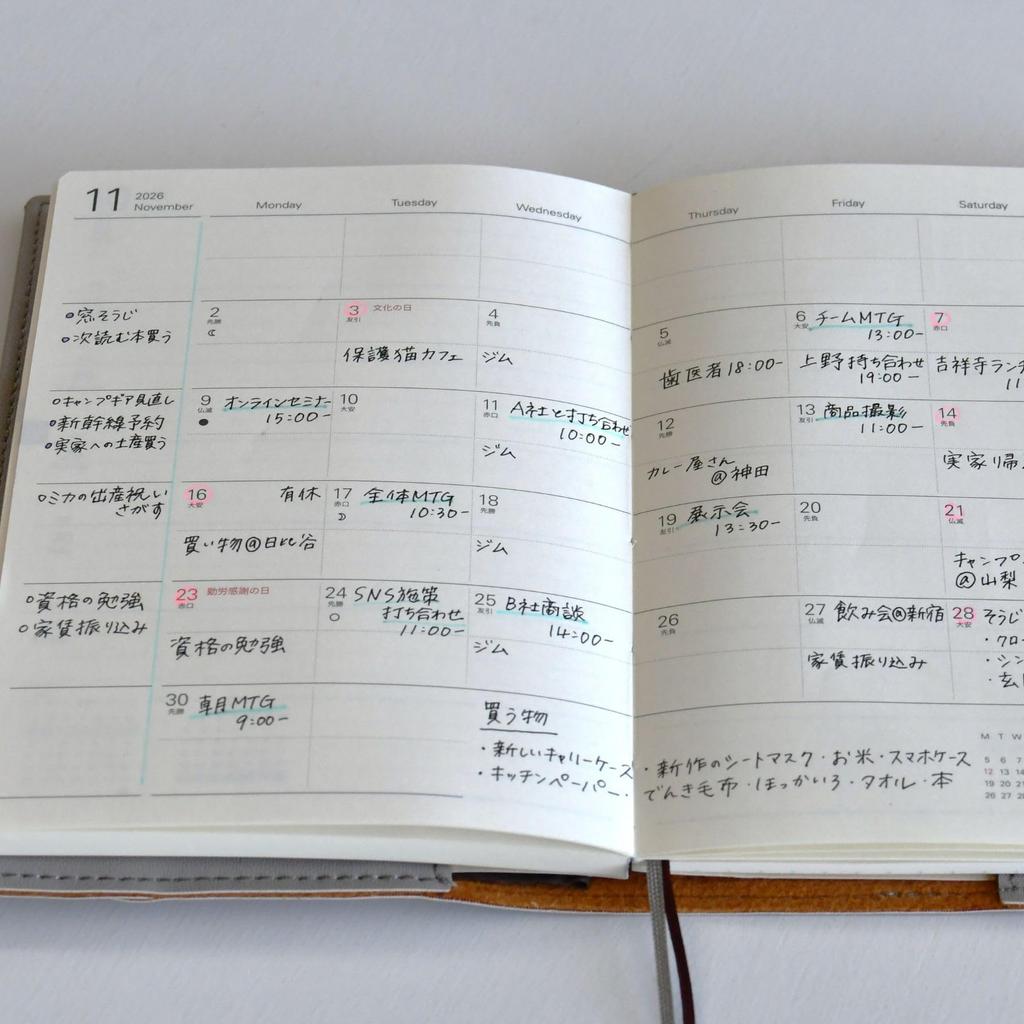 11 2026
November
Monday Tuesday Wednesday Thursday Friday Saturday
○窓そうじ
○次読む本買う
2 先勝
3 友引 文化の日
保護猫カフェ
4 先負
ジム
5 仏滅
歯医者18:00-
6 大安 チームMTG
13:00-
上野持ち合わせ
19:00-
7 赤口
吉祥寺ラン
11
○キャンプギア見直し
○新幹線予約
○実家への土産買う
9 仏滅 オンラインセミナー
15:00-
10 大安
11 赤口 A社と打ち合わせ
10:00-
ジム
12 先勝
カレー屋さん
@神田
13 友引 商品撮影
11:00-
14 先負
実家帰
○ミカの出産祝い
さがす
16 大安 有休
買い物@日比谷
17 赤口 全体MTG
10:30-
18 先勝
ジム
19 友引 展示会
13:30-
20 先負
21 仏滅
キャンプ
@山梨
○資格の勉強
○家賃振り込み
23 赤口 勤労感謝の日
資格の勉強
24 先勝 SNS施策
打ち合わせ
11:00-
25 友引 B社商談
14:00-
ジム
26 先負
27 仏滅 飲み会@新宿
家賃振り込み
28 大安 そうじ
・クロー
・シン
・玄
30 先勝 朝MTG
9:00-
買う物
・新しいキャリーケース
・キッチンペーパー・
・新作のシートマスク・お米・スマホケース
でんき毛布・ほっかいろ・タオル・本
M T W
5 6 7
12 13 14
19 20 21
26 27 28